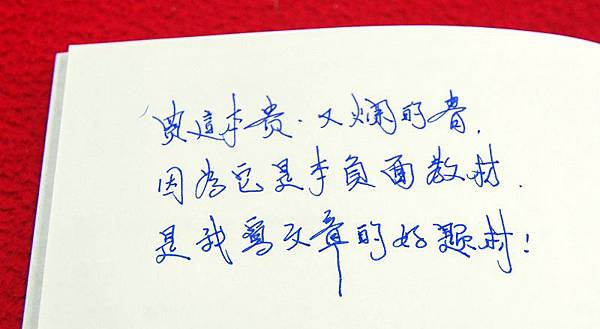 買這本貴·又爛的書,
因為它是本負面教材.
是我寫文章的好題材!